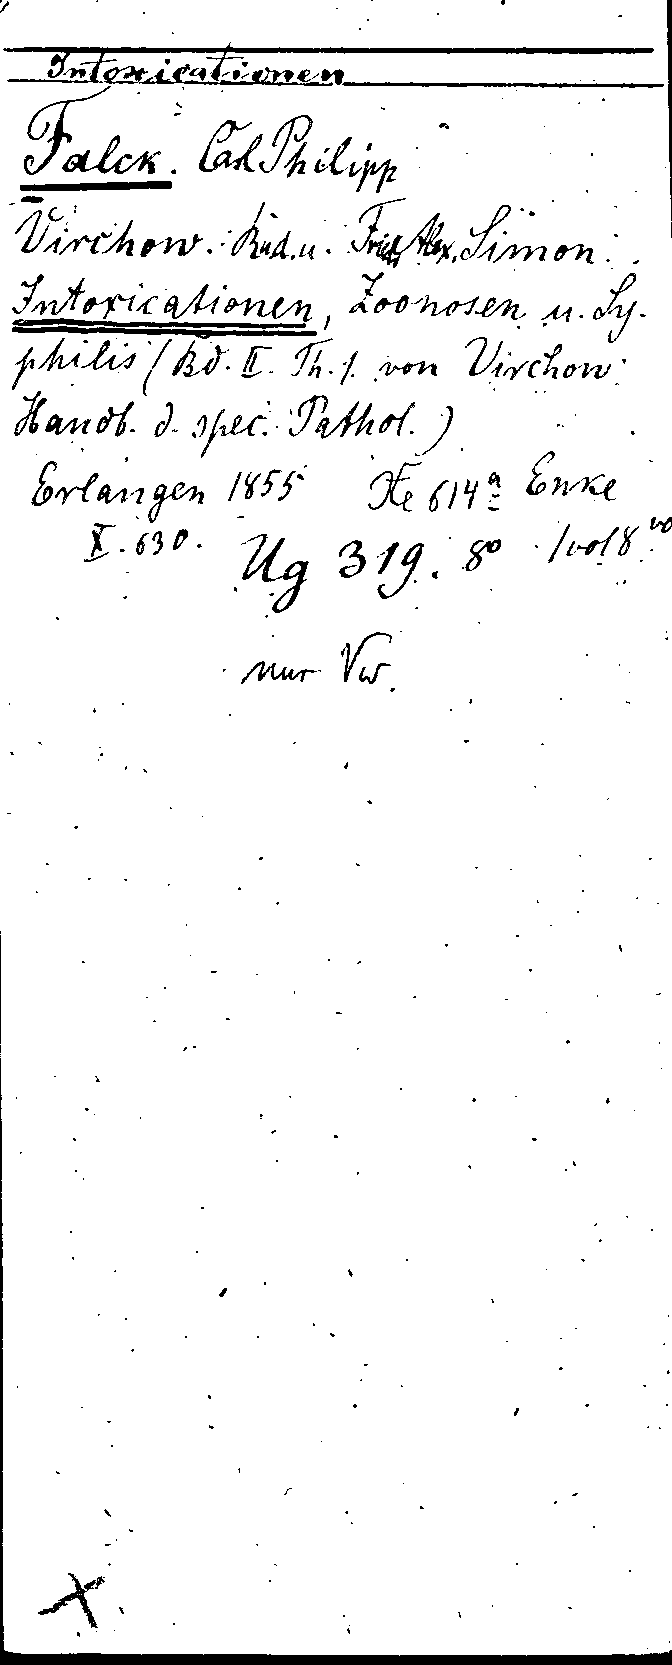 Intoxicationen
Falck. Carl Philipp
Virchow. Rud. u. Fried. Alex. Simon.
Intoxicationen, Zoonosen u. Sy-
philis (Bd. II. Th. 1. von Virchow
Handb. d. spec. Pathol.)
Erlangen 1855 614a Enke
X. 630.
Ug 319. 8o 1 vol 8vo
nur Vw.